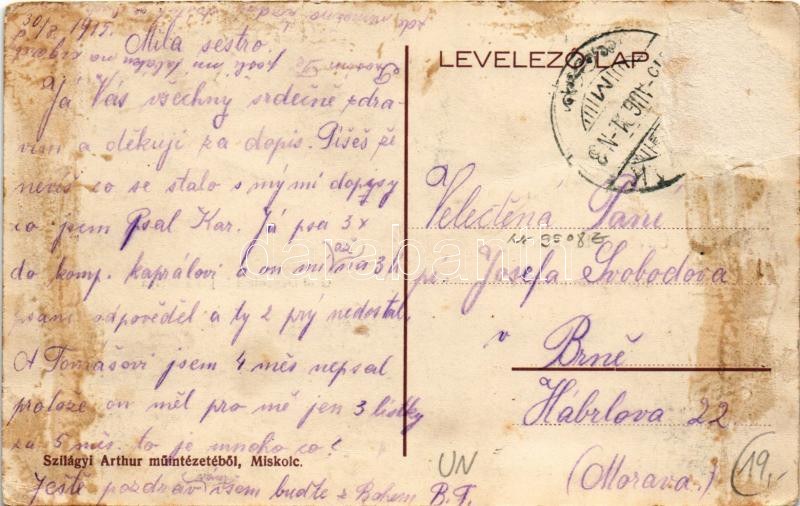 30/8. 1915.
Milá sestro.
Já Vás všechny srdečně zdra-
vím a děkuji za dopis. Píšeš že
nevíš co se stalo s mými dopysy
co jsem Psal Kar. Já psa 3x
do komp. kaprálovi a on mi až na 3h
psaní odpověděl a ty 2 prý nedostal.
A Tomášovi jsem 4 měs nepsal
protoze on měl pro mě jen 3 lístky
za 5 měs. to je mnoho co?
Szilágyi Arthur műintézetéből, Miskolc.
Ještě pozdrav všem buďte z Bohem B. F.
LEVELEZŐ-LAP
Velectěná Paní
pí. Josefa Svobodova
v
Brně
Hábrlova 22
(Morava.)
UN
19,-
darabanth